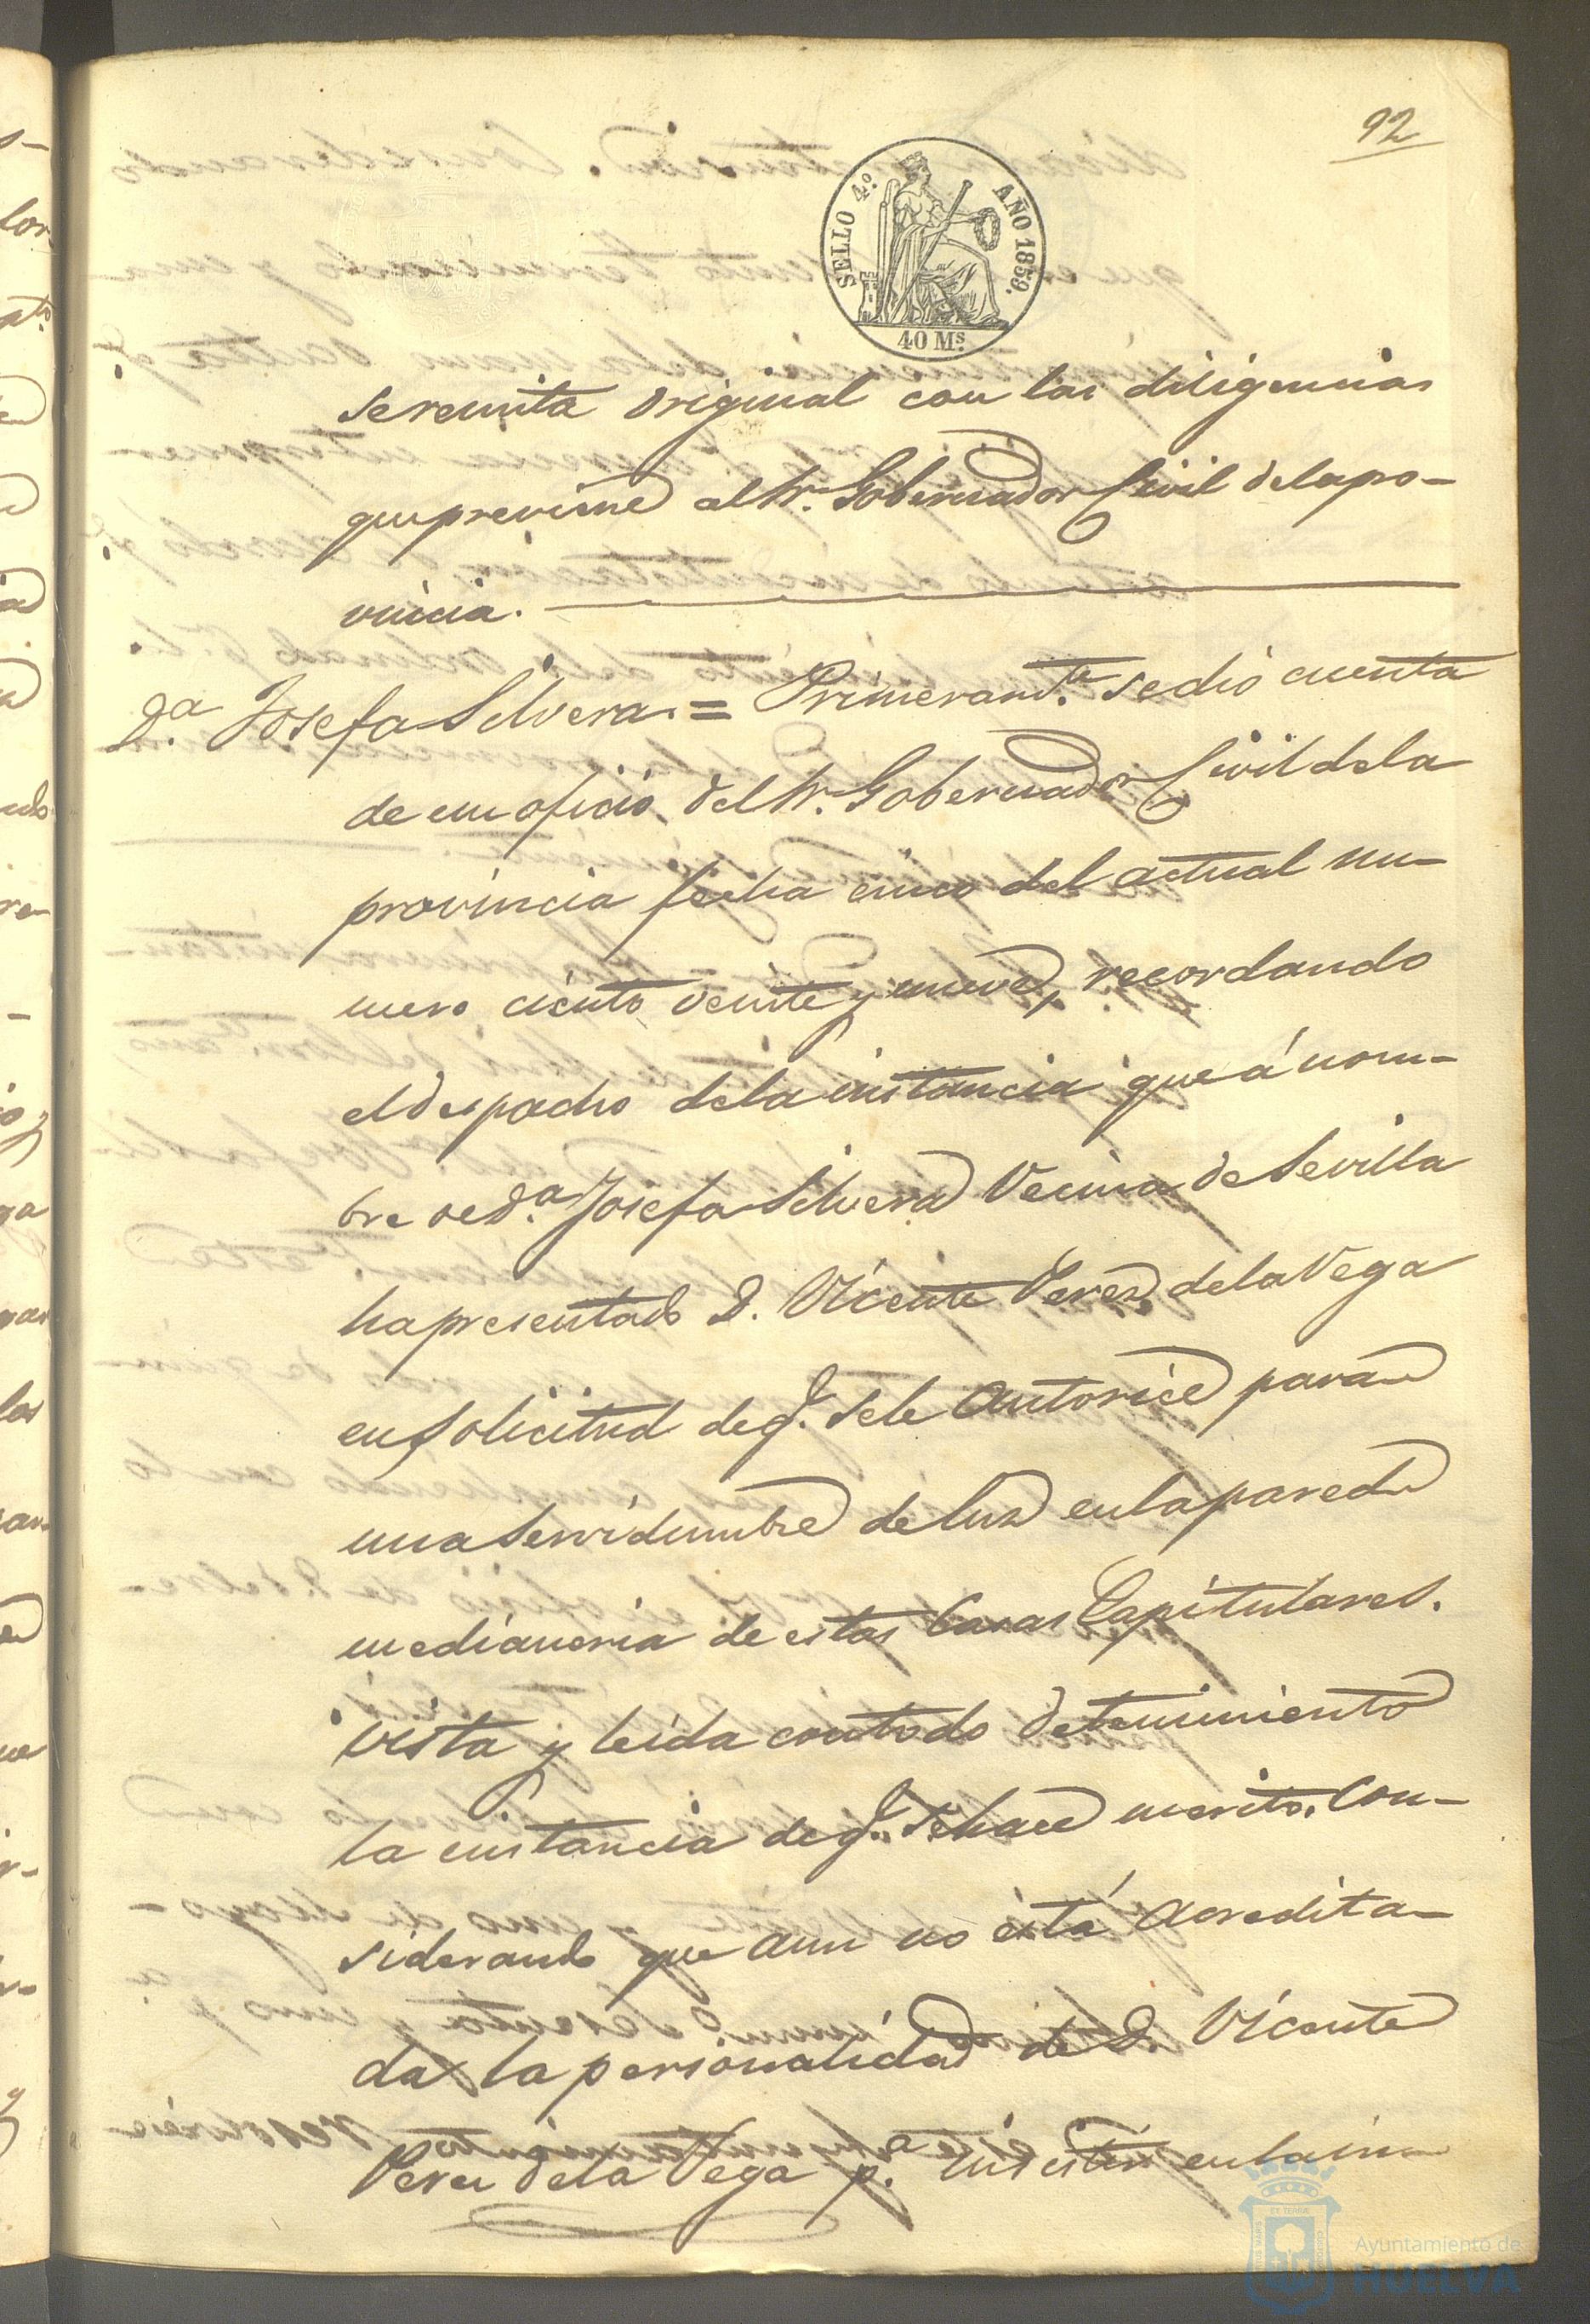 92
SELLO 4º. AÑO 1859.
40 Ms.
se remita original con las diligencias
que previene al Sr. Gobernador Civil de la pro-
vincia.
D.a Josefa Silvera. = Primeramte. se dió cuenta
de un oficio del Sr. Gobernador Civil de la
provincia fecha cinco del actual nu-
mero ciento veinte y nueve, recordando
el despacho de la instancia que á nom-
bre de D.a Josefa Silvera Vecina de Sevilla
ha presentado D. Vicente Perez de la Vega
en solicitud de q. se le autorice para
una servidumbre de luz en la pared
medianeria de estas Casas Capitulares.
vista y leida con todo detenimiento
la instancia de q. se hace merito. Con-
siderando que aun no está acredita-
da la personalidad de D. Vicente
Perez de la Vega p.a insistir en la ins-
Ayuntamiento de
HUELVA